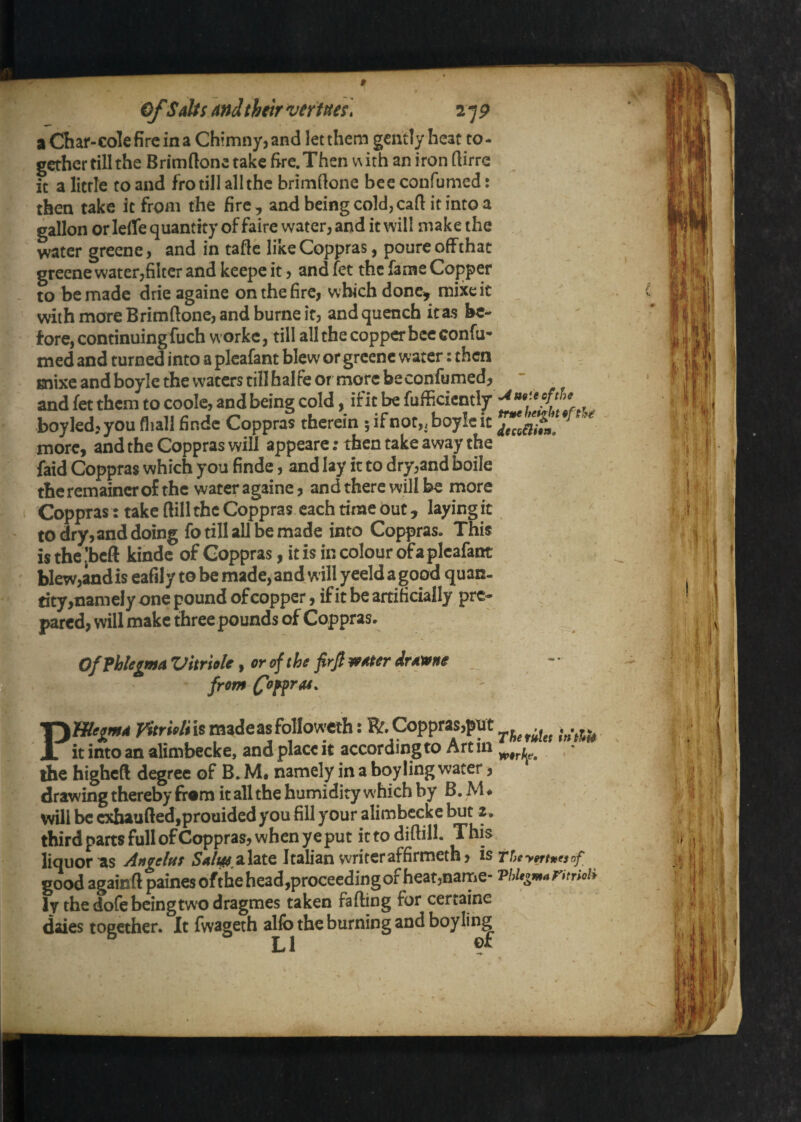 Of Salts and their vertues. 279
a Char-cole fire in a Chimny, and let them gently heat to-
gether till the Brimſtone take fire. Then with an iron ſtirre
it a little to and fro till all the brimſtone bee conſumed:
then take it from the fire, and being cold, caſt it into a
gallon or leſſe quantity of faire water, and it will make the
water greene, and in taſte like Coppras, poure off that
greene water, filter and keepe it, and ſet the ſame Copper
to be made drie againe on the fire, which done, mixe it
with more Brimſtone, and burne it, and quench it as be-
fore, continuing ſuch worke, till all the copper bee conſu-
med and turned into a pleaſant blew or greene water: then
mixe and boyle the waters till halfe or more be conſumed,
and ſet them to coole, and being cold, if it be ſufficiently
boyled, you ſhall finde Coppras therein; if not, boyle it
more, and the Coppras will appeare: then take away the
ſaid Coppras which you finde, and lay it to dry, and boile
the remainer of the water againe, and there will be more
Coppras: take ſtill the Coppras each time out, laying it
to dry, and doing ſo till all be made into Coppras. This
is the beſt kinde of Coppras, it is in colour of a pleaſant
blew, and is eaſily to be made, and will yeeld a good quan-
tity, namely one pound of copper, if it be artificially pre-
pared, will make three pounds of Coppras.
A note of the
true height of the
decoction.
Of Phlegma Vitriole, or of the firſt water drawne
from Coppras.
PHlegma Vitrioli is made as followeth: ℞. Coppras, put
it into an alimbecke, and place it according to Art in
the higheſt degree of B. M. namely in a boyling water,
drawing thereby from it all the humidity which by B. M.
will be exhauſted, prouided you fill your alimbecke but 2.
third parts full of Coppras, when ye put it to diſtill. This
liquor as Angelus Sala, a late Italian writer affirmeth, is
good againſt paines of the head, proceeding of heat, name-
ly the doſe being two dragmes taken faſting for certaine
daies together. It ſwageth alſo the burning and boyling
The rules in this
worke.
The vertues of
Phlegma Vitrioli
Ll of